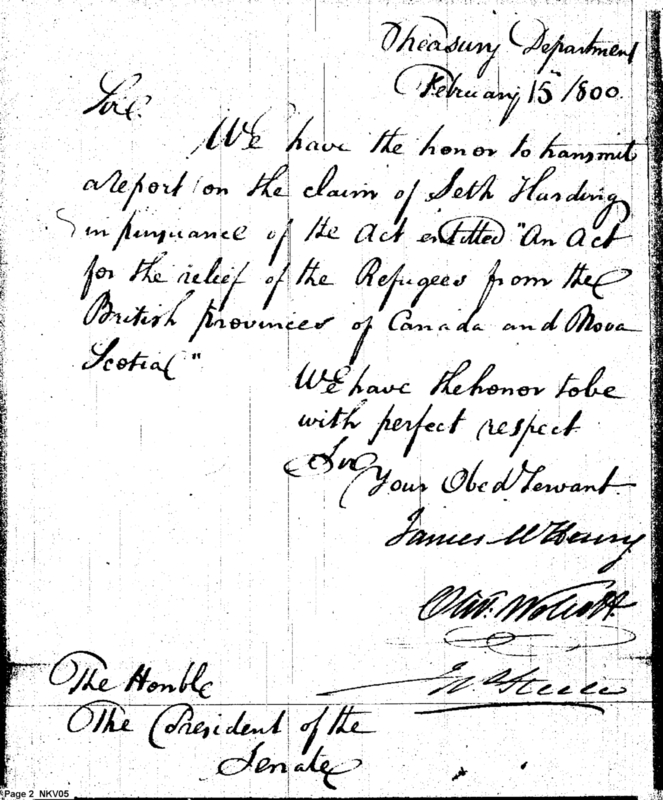 Treasury Department
February 15th 1800.
Sir.
We have the honor to transmit
a report on the claim of Seth Harding
in pursuance of the Act entitled "An Act
for the relief of the Refugees from the
British provinces of Canada and Nova
Scotia"
We have the honor to be
with perfect respect
Sir
Your Obed Servant
James McHenry
Oliv. Wolcott
Jno Steele
The Honble
The President of the
Senate
Page 2 NKV05